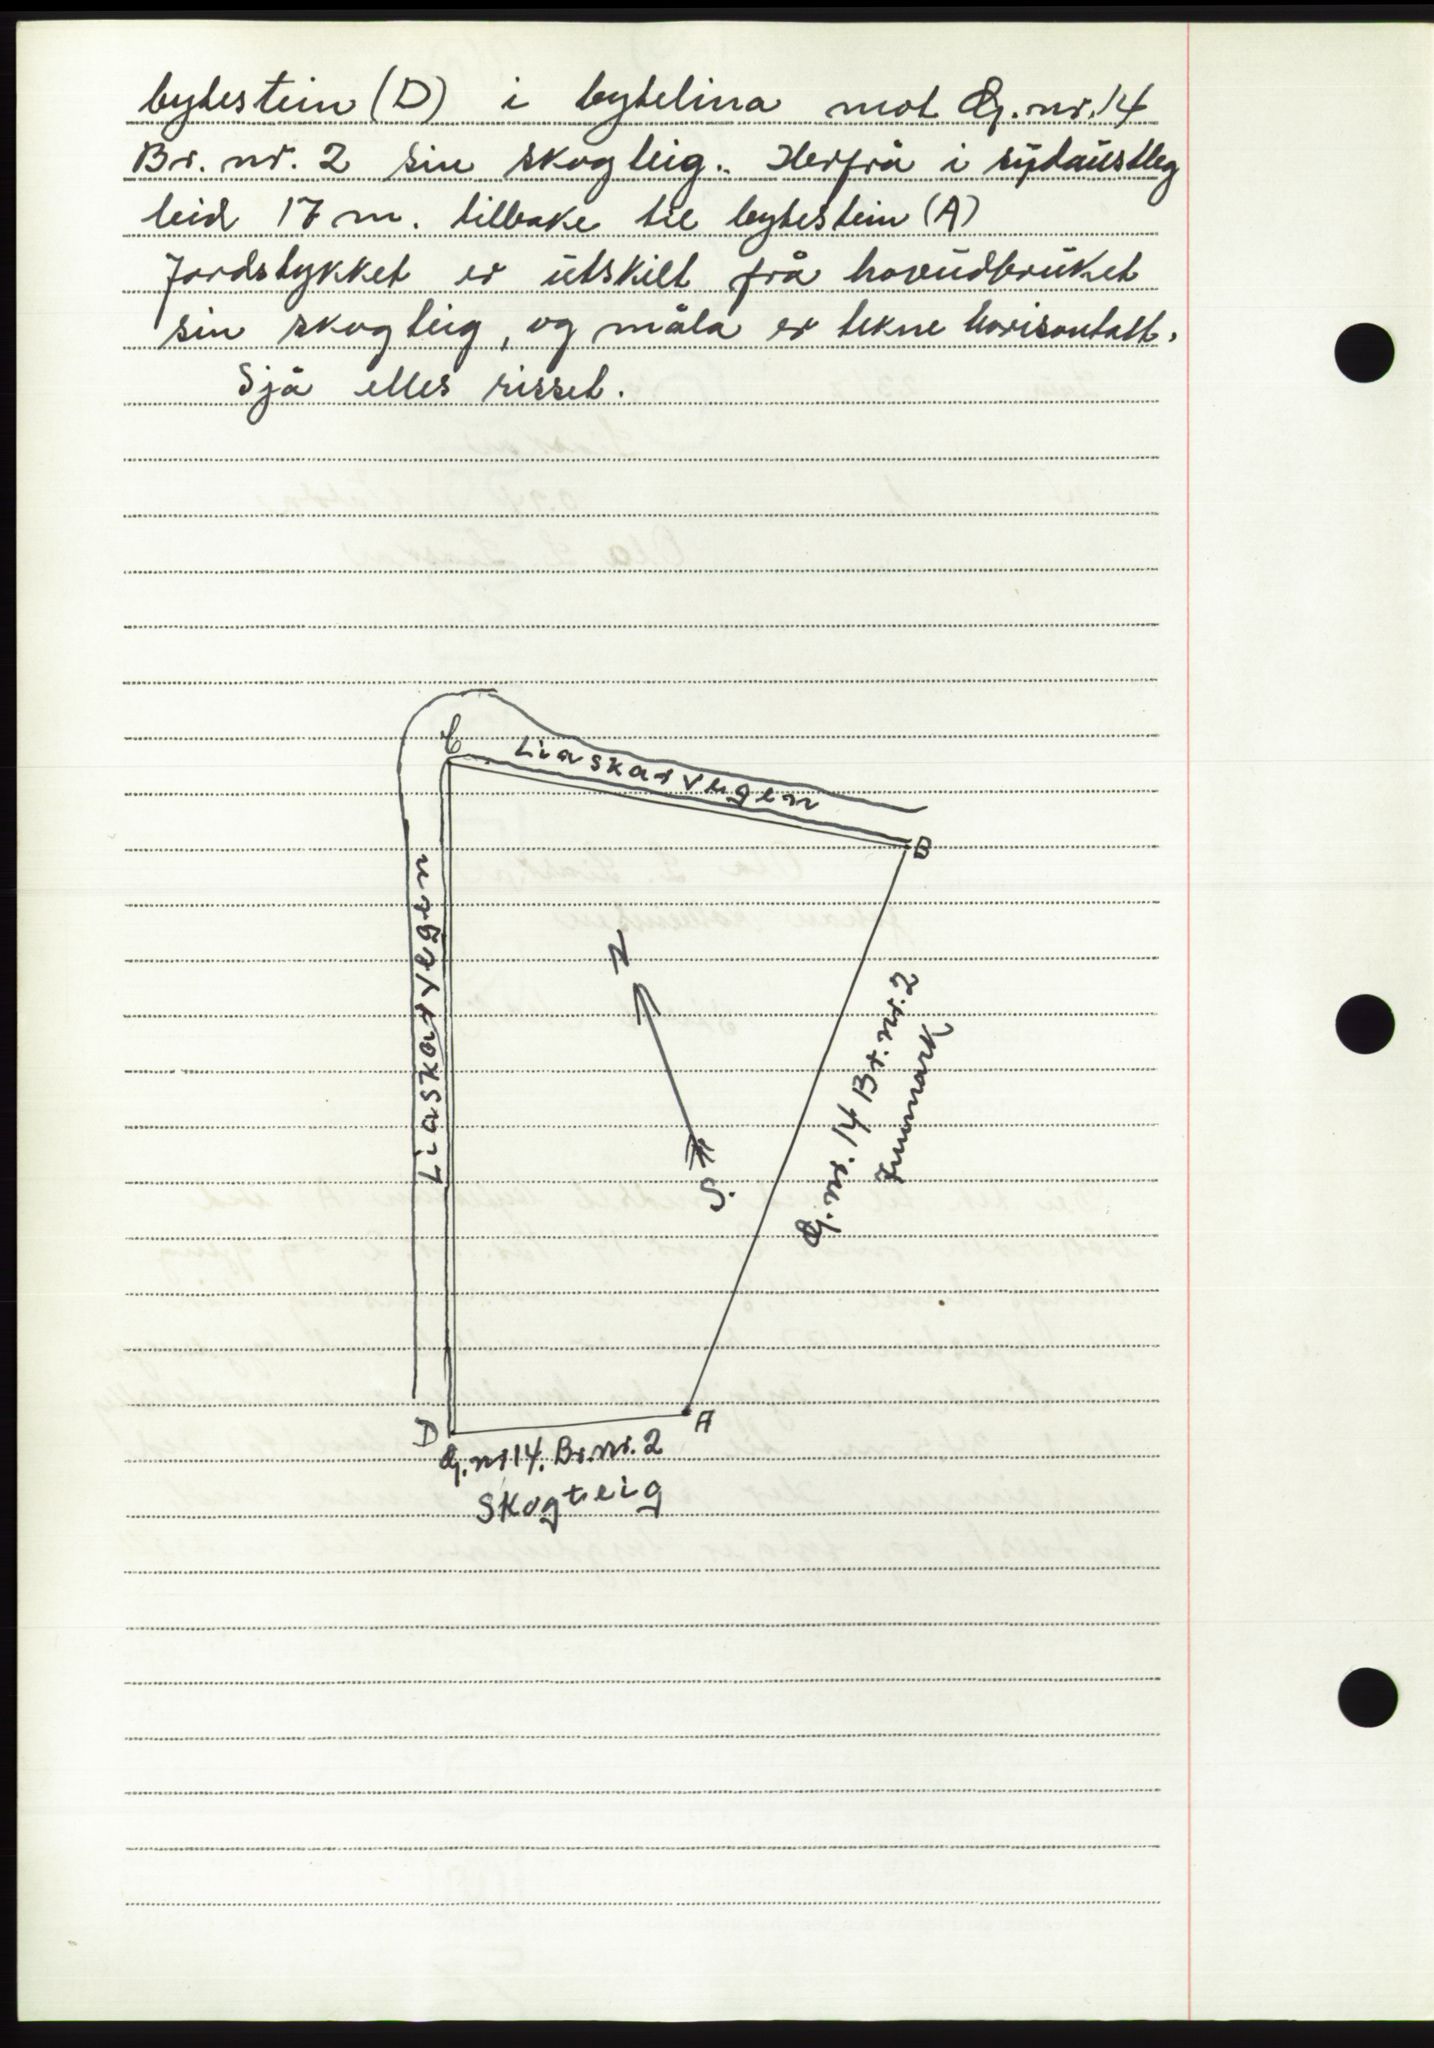 bytestein (D) i bytelina mot G.nr. 14
Br. nr. 2 sin skogteig. Herfrå i sydaustleg
leid 17 m. tilbake til bytestein (A)
Jordstykket er utskilt frå hovudbruket
sin skogteig, og måla er tekne horisontalt.
Sjå elles risset.
C
Liaskarvegen
B
Liaskarvegen
N
S.
G. nr. 14 Br. nr. 2
Innmark
D
A
G. nr 14. Br. nr. 2
Skogteig